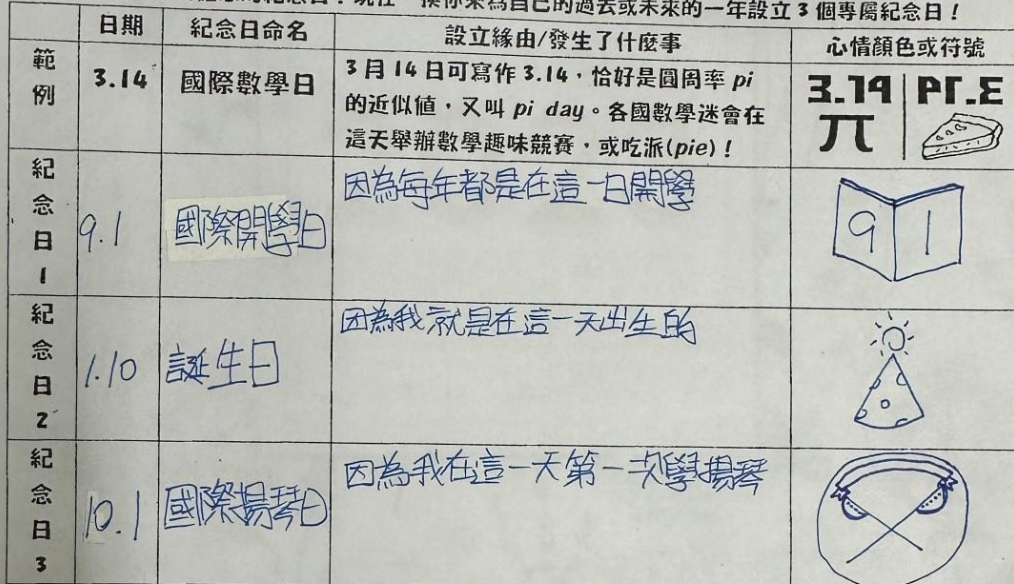 的紀念日！現在，換你來為自己的過去或未來的一年設立 3 個專屬紀念日！
日期 紀念日命名 設立緣由/發生了什麼事 心情顏色或符號
範例 3.14 國際數學日
3 月 14 日可寫作 3.14，恰好是圓周率 pi
的近似值，又叫 pi day。各國數學迷會在
這天舉辦數學趣味競賽，或吃派(pie)！
3.14 PI.E
π
紀念日1 9.1 國際開學日 因為每年都是在這一日開學 9 1
紀念日2 1.10 誕生日 因為我就是在這一天出生的
紀念日3 10.1 國際揚琴日 因為我在這一天第一次學揚琴